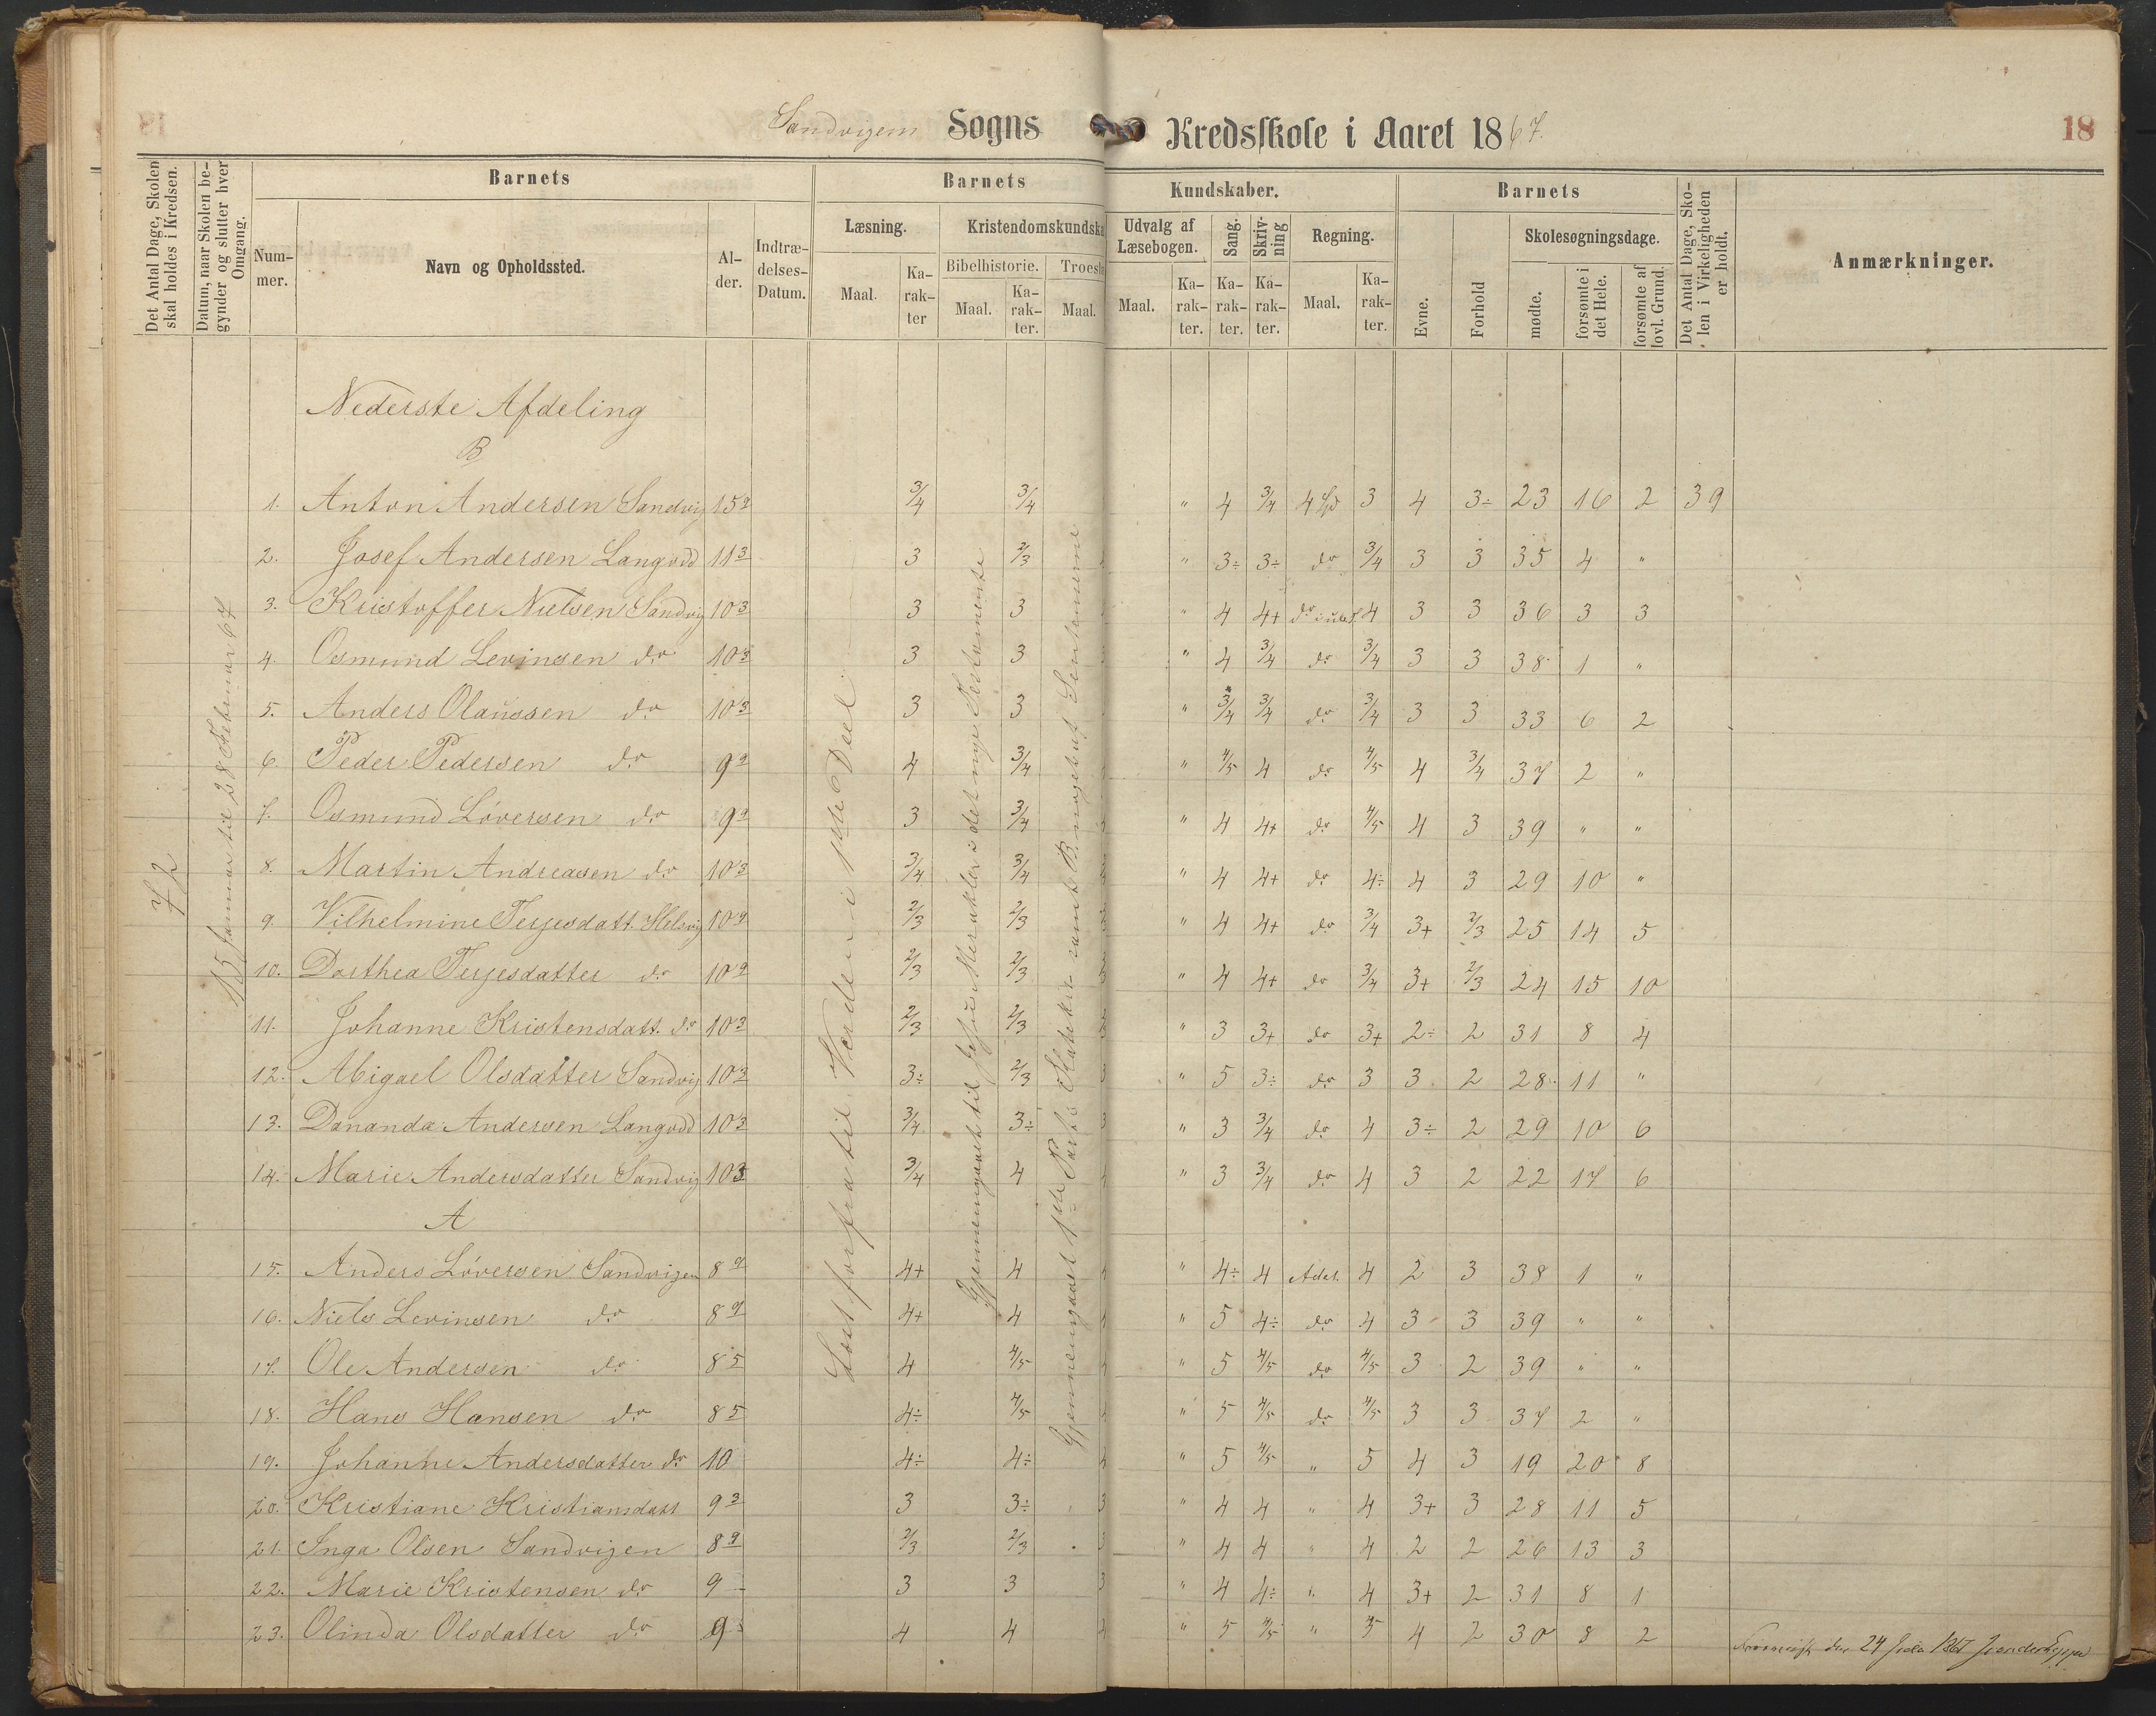 Sandvigens Sogns Kredsskole i Aaret 1867.
18
Det Antal Dage, Skolen skal holdes i Kredsen.
Datum, naar Skolen begynder og slutter hver Omgang.
Barnets
Barnets
Kundskaber.
Barnets
Det Antal Dage, Skolen i Virkeligheden er holdt.
Anmærkninger.
Nummer.
Navn og Opholdssted.
Alder.
Indtrædelses-Datum.
Læsning.
Kristendomskundska
Udvalg af Læsebogen.
Sang.
Skrivning
Regning.
Evne.
Forhold
Skolesøgningsdage.
Maal.
Karakter
Bibelhistorie.
Troesl
Maal.
Karakter.
Maal.
Maal.
Karakter.
Karakter.
Karakter.
Maal.
Karakter.
mødte.
forsømte i det Hele.
forsømte af lovl. Grund.
72
15 Januar til 28 Februar 67
Læst forfra til Verden i 1ste Deel
Gjennemgaaet til Jesu Mirakler i det nye Testamente
Nederste Afdeling
B
1. Anton Andersen Sandvig 15 9 3/4 3/4 " 4 3/4 3 4 3÷ 23 16 2 39
2. Josef Andersen Langodd 11 3 3 2/3 " 3÷ 3÷ do 3/4 3 3 35 4 "
3. Kristoffer Nielsen Sandvig 10 3 3 3 " 4 4+ do 4 3 3 36 3 3
4. Osmund Levinsen do 10 3 3 3 " 4 3/4 do 3/4 3 3 38 1 "
5. Anders Olaussen do 10 3 3 3 " 3/4 3/4 do 3/4 3 3 33 6 2
6. Peder Pedersen do 9 9 4 3/4 " 4/5 4 do 4/5 4 3/4 37 2 "
7. Osmund Löversen do 9 9 3 3/4 " 4 4+ do 4/5 4 3 39 " "
8. Martin Andreasen do 10 3 3/4 3/4 " 4 4+ do 4÷ 4 3 29 10 "
9. Vilhelmine Terjesdatt. Helsvig 10 9 2/3 2/3 " 4 4+ do 3/4 3+ 2/3 25 14 5
10. Dorthea Terjesdatter do 10 9 2/3 2/3 " 4 4+ do 3/4 3+ 2/3 24 15 10
11. Johanne Kristensdatt. do 10 3 2/3 2/3 " 3 3+ do 3+ 2÷ 2 31 8 4
12. Abigael Olsdatter Sandvig 10 3 3÷ 2/3 " 5 3÷ do 3 3 2 28 11 "
13. Dananda Andersen Langodd 10 3 3/4 3÷ 3 " 3 3/4 do 4 3÷ 2 29 10 6
14. Marie Andersdatter Sandvig 10 3 3/4 4 4 " 3 3/4 do 4 3 2 22 17 6
A
15. Anders Löversen Sandvigen 8 9 4+ 4 4 " 4÷ 4 Adet. 4 2 3 38 1 "
16. Niels Levinsen do 8 9 4+ 4 4 " 5 4÷ do 4 3 3 39 " "
17. Ole Andersen do 8 5 4 4/5 " 5 4/5 do 4/5 3 2 39 " "
18. Hans Hansen do 8 5 4÷ 4/5 " 5 4/5 do 4/5 3 3 37 2 "
19. Johanne Andersdatter do 10 4÷ 4÷ " 5 4/5 " 5 4 3 19 20 8
20. Kristiane Kristiansdatt 9 3 3 3÷ 3 " 4 4 " 4 3+ 3 28 11 5
21. Inga Olsen Sandvigen 8 9 2/3 2/3 3 " 4 4 " 4 2 2 26 13 3
22. Marie Kristensen do 9 3 3 3 " 4 4÷ " 4 3+ 2 31 8 1
23. Olinda Olsdatter do 9 4 4 4 " 5 4/5 " 5 4 2 30 8 2
den 24 1867